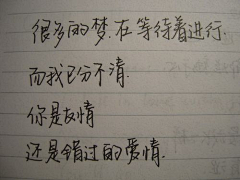 很多的梦.在等待着进行.
而我已分不清.
你是友情
还是错过的爱情.